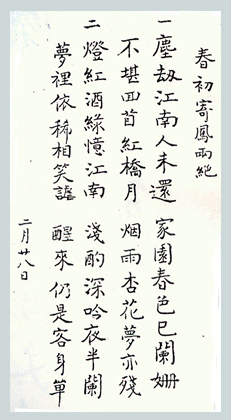 春初寄鳳兩絕
一塵劫江南人未還 家園春色已闌姍
不堪囬首紅橋月 烟雨杏花夢亦殘
二燈紅酒綠憶江南 淺酌深吟夜半闌
夢裡依稀相笑謔 醒來仍是客身單
二月廿八日